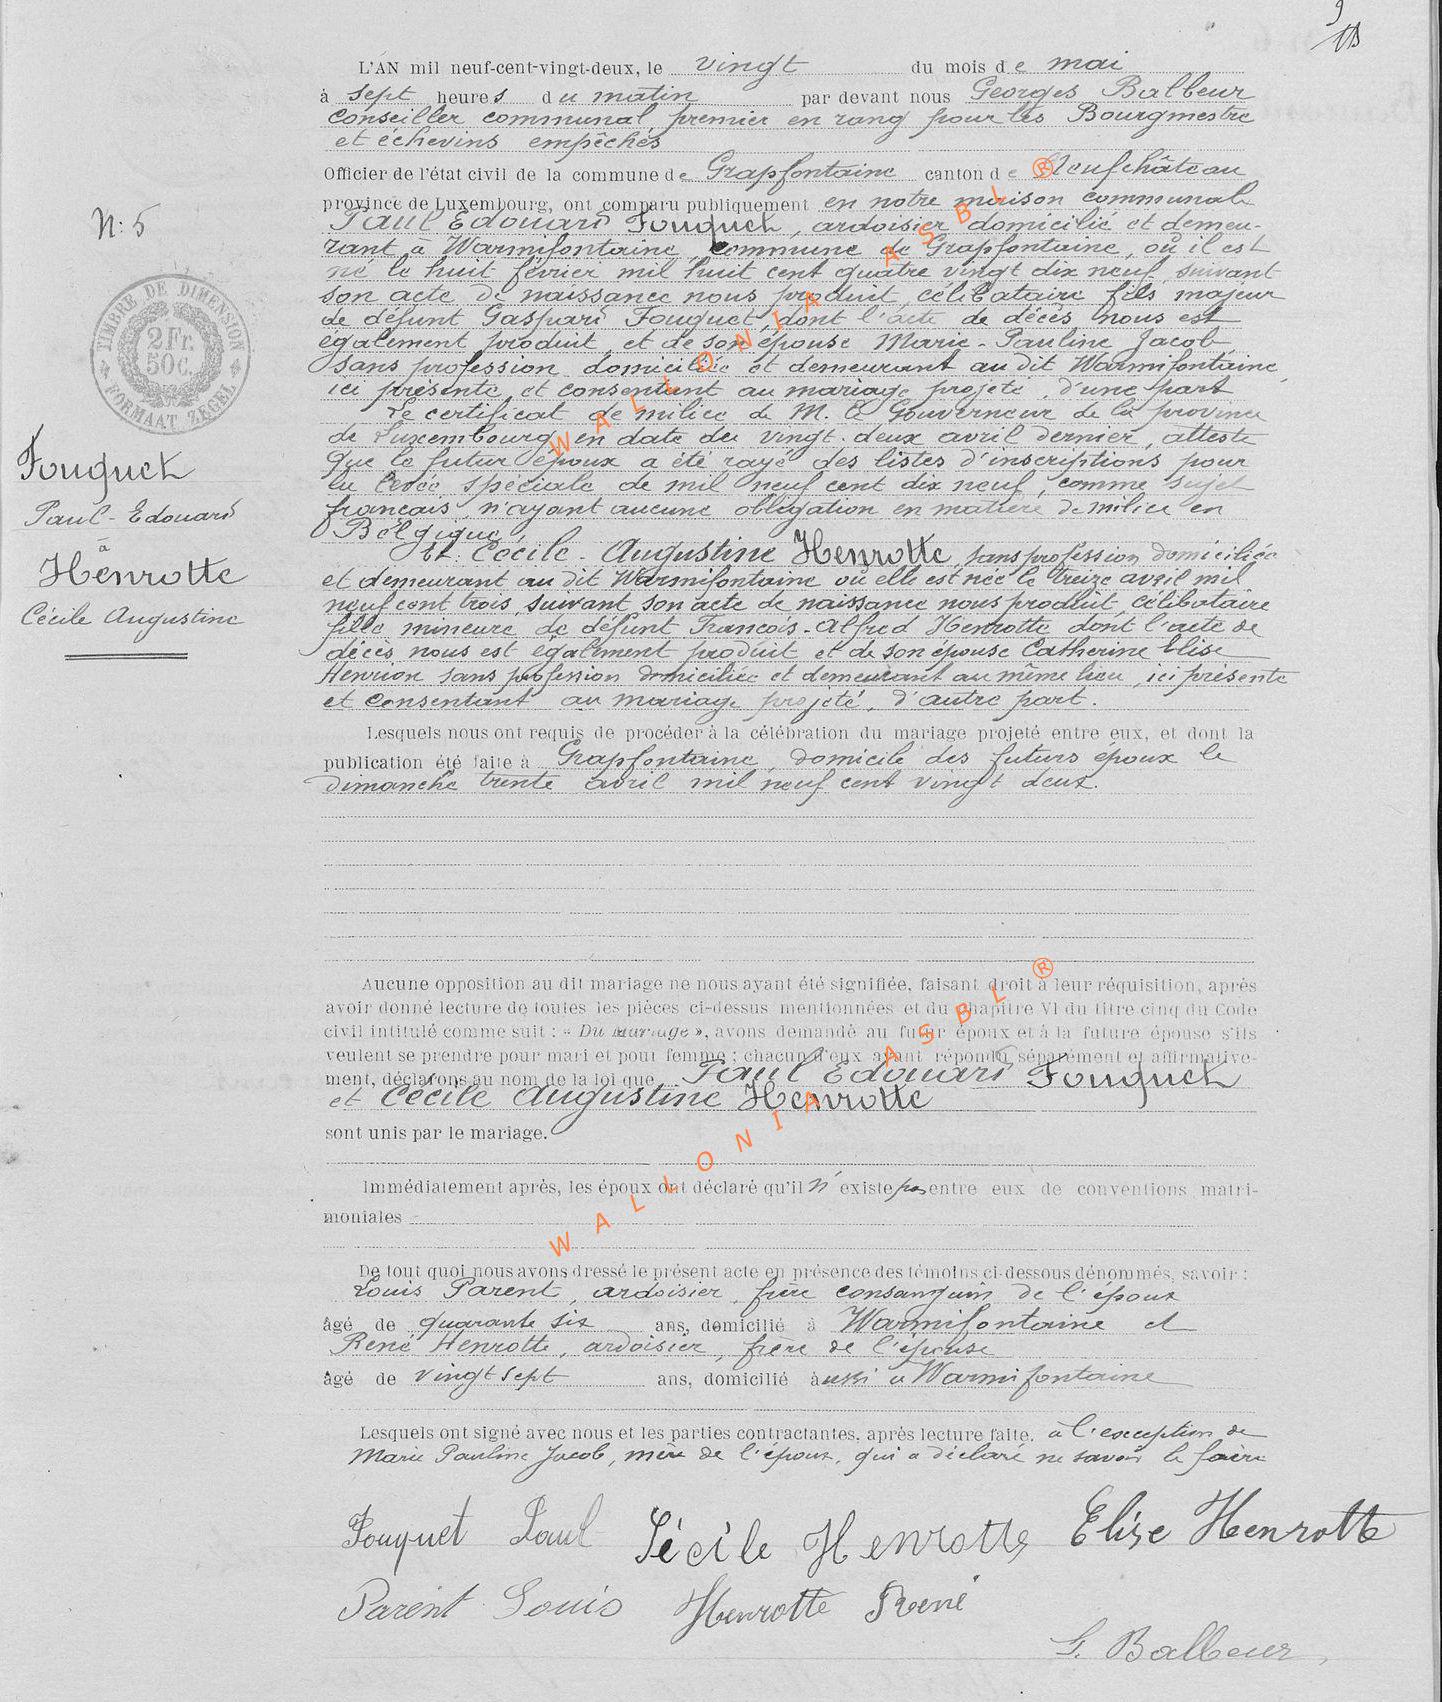 9
L'AN mil neuf-cent-vingt-deux, le vingt du mois de mai
à sept heures du matin par devant nous Georges Balbeur
Conseiller communal, premier en rang pour les Bourgmestre
et échevins empêchés
Officier de l'état civil de la commune de Grapfontaine canton de Neufchâteau
province de Luxembourg, ont comparu publiquement en notre maison communale
N: 5
Paul Edouard Fouquet, ardoisier domicilié et demeu-
rant à Warmifontaine, commune de Grapfontaine, où il est
né le huit février mil huit cent quatre vingt dix neuf, suivant
son acte de naissance nous produit, célibataire fils majeur
de défunt Gaspard Fouquet, dont l'acte de décès nous est
également produit, et de son épouse Marie-Pauline Jacob
sans profession domiciliée et demeurant au dit Warmifontaine,
ici présente et consentant au mariage projeté, d'une part
TIMBRE DE DIMENSION
2 Fr.
50 c.
FORMAAT ZEGEL
Le certificat de milice de M. le Gouverneur de la province
de Luxembourg en date du vingt-deux avril dernier, atteste
que le futur époux a été rayé des listes d'inscriptions pour
la levée spéciale de mil neuf cent dix neuf, comme sujet
français n'ayant aucune obligation en matière de milice en
Belgique,
Fouquet
Paul-Edouard
à
Henrotte
Cécile Augustine
Et Cécile-Augustine Henrotte, sans profession domiciliée
et demeurant au dit Warmifontaine où elle est née le treize avril mil
neuf cent trois, suivant son acte de naissance nous produit, célibataire
fille mineure de défunt François-Alfred Henrotte dont l'acte de
décès nous est également produit et de son épouse Catherine Elise
Henrion sans profession domiciliée et demeurant au même lieu, ici présente
et consentant au mariage projeté, d'autre part.
Lesquels nous ont requis de procéder à la célébration du mariage projeté entre eux, et dont la
publication été faite à Grapfontaine, domicile des futurs époux le
dimanche trente avril mil neuf cent vingt deux.
Aucune opposition au dit mariage ne nous ayant été signifiée, faisant droit à leur réquisition, après
avoir donné lecture de toutes les pièces ci-dessus mentionnées et du chapitre VI du titre cinq du Code
civil intitulé comme suit : « Du mariage », avons demandé au futur époux et à la future épouse s'ils
veulent se prendre pour mari et pour femme ; chacun d'eux ayant répondu séparément et affirmative-
ment, déclarons au nom de la loi que Paul Edouard Fouquet
et Cécile Augustine Henrotte
sont unis par le mariage.
Immédiatement après, les époux ont déclaré qu'il n'existe pas entre eux de conventions matri-
moniales
De tout quoi nous avons dressé le présent acte en présence des témoins ci-dessous dénommés, savoir :
Louis Parent, ardoisier, frère consanguin de l'époux
âgé de quarante six ans, domicilié à Warmifontaine et
René Henrotte, ardoisier, frère de l'épouse
âgé de vingt sept ans, domicilié aussi à Warmifontaine
Lesquels ont signé avec nous et les parties contractantes, après lecture faite, à l'exception de
Marie Pauline Jacob, mère de l'époux, qui a déclaré ne savoir le faire
Fouquet Paul Cécile Henrotte Elise Henrotte
Parent Louis Henrotte René
G. Balbeur
WALLONIA ASBL ®
WALLONIA ASBL ®